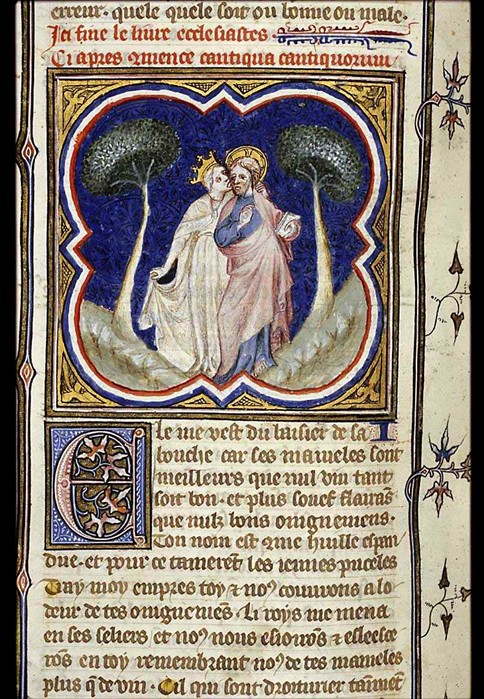 erreur. quele quele soit ou bonne ou male.
Ici fine le liure ecclesiastes
Ci apres qmence cantiqua cantiquorum
le me vest du baisier de sa
bouche car ses mameles sont
meilleurs que nul vin tant
soit bon. et plus souef flairās
que nulz bons oinguemens.
Ton nom est qme huille espan
due. et pour ce tamerēt les iennes puceles
Tray moy empres toy & noꝰ courrons a lo
deur de tes oinguemēs. Li roys me mena
en ses seliers et noꝰ nous esioirōs & esleesce
rōs en toy remembrant noꝰ de tes mameles
plus q̄ de vin. Cil qui sont droiturier taimēt